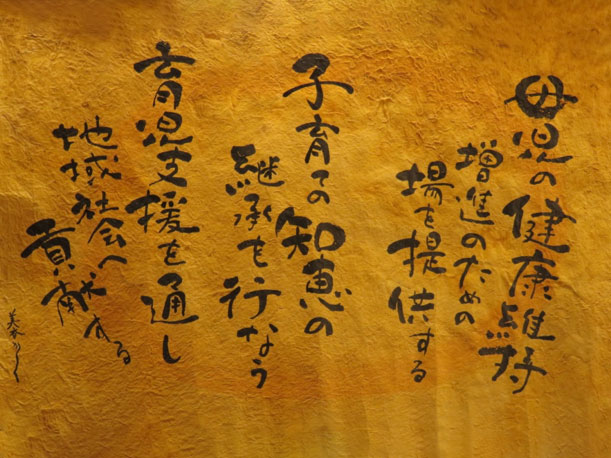 母児の健康維持
増進のための
場を提供する
子育ての知恵の
継承を行なう
育児支援を通し
地域社会へ
貢献する